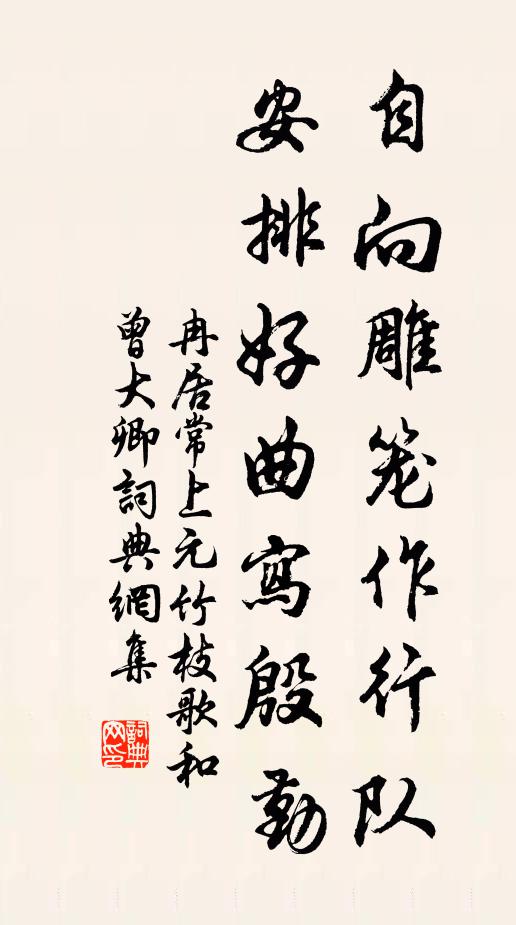 自向雕笼作行队
安排好曲寫殷勤
冉居常上元竹枝歌和
曾大卿詞典網集
詞典網印